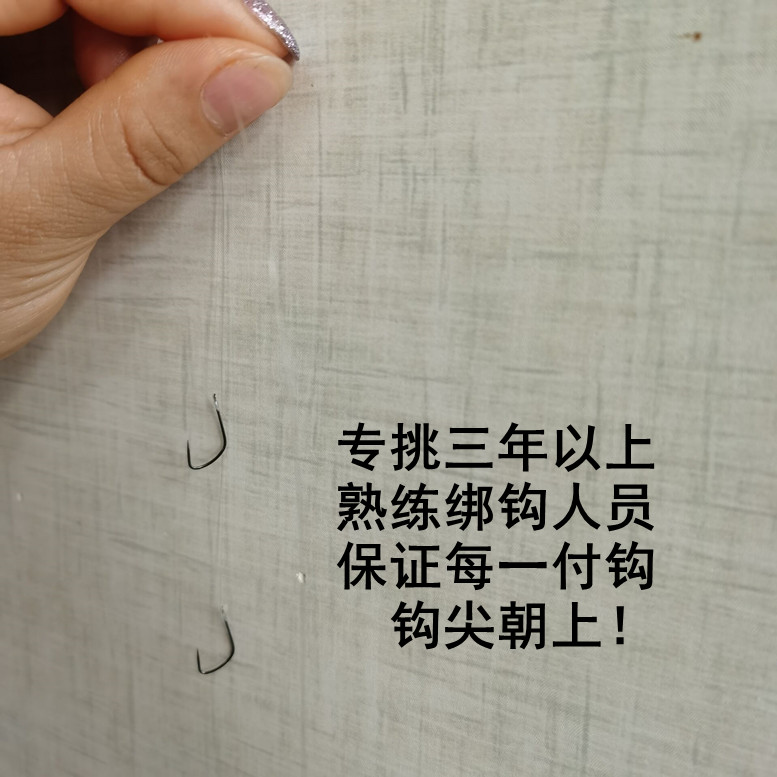 专挑三年以上
熟练绑钩人员
保证每一付钩
钩尖朝上！